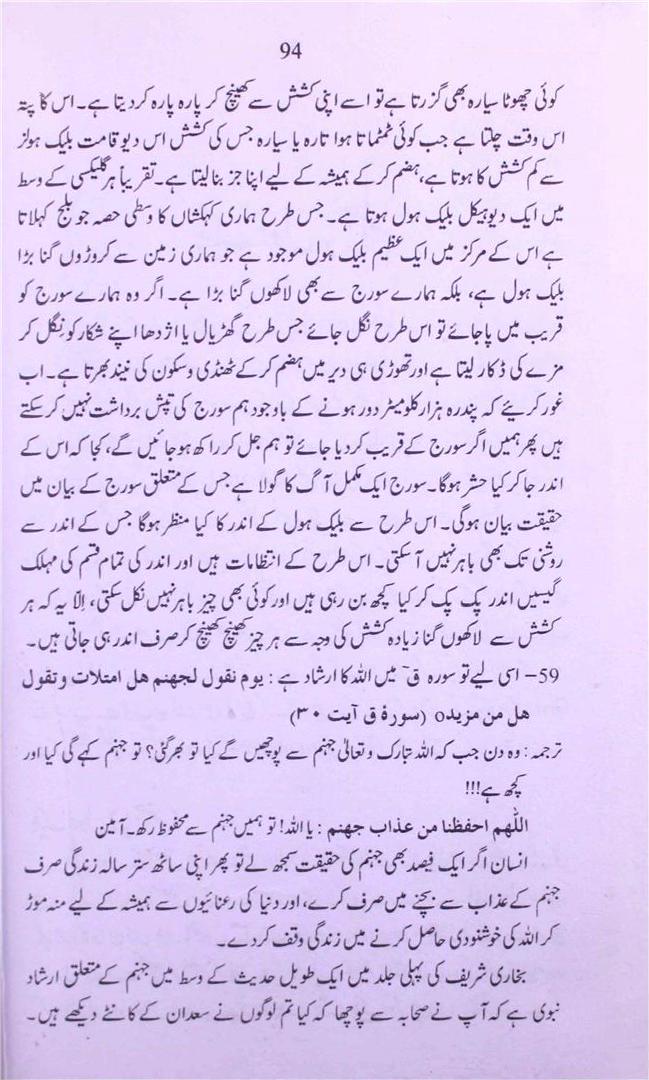 94
کوئی چھوٹا سیارہ بھی گزرتا ہے تو اسے اپنی کشش سے کھینچ کر پارہ پارہ کر دیتا ہے۔ اس کا پتہ
اس وقت چلتا ہے جب کوئی ٹمٹماتا ہوا تارہ یا سیارہ جس کی کشش اس دیو قامت بلیک ہولز
سے کم کشش کا ہوتا ہے، ہضم کر کے ہمیشہ کے لیے اپنا جز بنا لیتا ہے۔ تقریباً ہر گلیکسی کے وسط
میں ایک دیو ہیکل بلیک ہول ہوتا ہے۔ جس طرح ہماری کہکشاں کا وسطی حصہ جو بلج کہلاتا
ہے اس کے مرکز میں ایک عظیم بلیک ہول موجود ہے جو ہماری زمین سے کروڑوں گنا بڑا
بلیک ہول ہے، بلکہ ہمارے سورج سے بھی لاکھوں گنا بڑا ہے۔ اگر وہ ہمارے سورج کو
قریب میں پا جائے تو اس طرح نگل جائے جس طرح گھڑیال یا اژدھا اپنے شکار کو نگل کر
مزے کی ڈکار لیتا ہے اور تھوڑی ہی دیر میں ہضم کر کے ٹھنڈی و سکون کی نیند بھرتا ہے۔ اب
غور کرئیے کہ پندرہ ہزار کلومیٹر دور ہونے کے باوجود ہم سورج کی تپش برداشت نہیں کر سکتے
ہیں پھر ہمیں اگر سورج کے قریب کر دیا جائے تو ہم جل کر راکھ ہو جائیں گے، کجا کہ اس کے
اندر جا کر کیا حشر ہوگا۔ سورج ایک مکمل آگ کا گولا ہے جس کے متعلق سورج کے بیان میں
حقیقت بیان ہوگی۔ اس طرح سے بلیک ہول کے اندر کا کیا منظر ہوگا جس کے اندر سے
روشنی تک بھی باہر نہیں آ سکتی۔ اس طرح کے انتظامات ہیں اور اندر کی تمام قسم کی مہلک
گیسیں اندر پک پک کر کیا کچھ بن رہی ہیں اور کوئی بھی چیز باہر نہیں نکل سکتی، اِلّا یہ کہ ہر
کشش سے لاکھوں گنا زیادہ کشش کی وجہ سے ہر چیز کھینچ کھینچ کر صرف اندر ہی جاتی ہیں۔
59- اسی لیے تو سورہ قٓ میں اللہ کا ارشاد ہے : یوم نقول لجھنم ھل امتلات وتقول
ھل من مزیدo (سورۂ ق آیت ۳۰)
ترجمہ : وہ دن جب کہ اللہ تبارک و تعالیٰ جہنم سے پوچھیں گے کیا تو بھر گئی؟ تو جہنم کہے گی کیا اور
کچھ ہے!!!
اللّٰھم احفظنا من عذاب جھنم : یا اللہ! تو ہمیں جہنم سے محفوظ رکھ۔ آمین
انسان اگر ایک فیصد بھی جہنم کی حقیقت سمجھ لے تو پھر اپنی ساٹھ ستر سالہ زندگی صرف
جہنم کے عذاب سے بچنے میں صرف کرے، اور دنیا کی رعنائیوں سے ہمیشہ کے لیے منہ موڑ
کر اللہ کی خوشنودی حاصل کرنے میں زندگی وقف کر دے۔
بخاری شریف کی پہلی جلد میں ایک طویل حدیث کے وسط میں جہنم کے متعلق ارشاد
نبوی ہے کہ آپ نے صحابہ سے پوچھا کہ کیا تم لوگوں نے سعدان کے کانٹے دیکھے ہیں۔